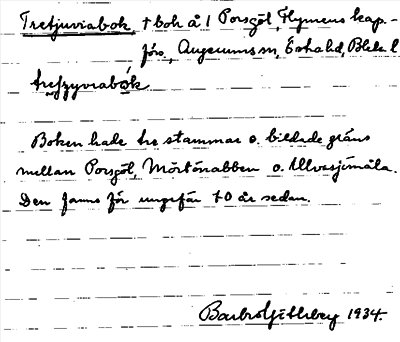 Tretjuviabok, † bok å 1 Porsgöl, Flymens kap.-
förs, Augerums sn, Östra hd, Blek. l
trefzyvrabók
Boken hade tre stammar o. bildade gräns
mellan Porsgöl, Mörtönabben o. Ulvasjömåla.
Den fanns för ungefär 40 år sedan.
1934.